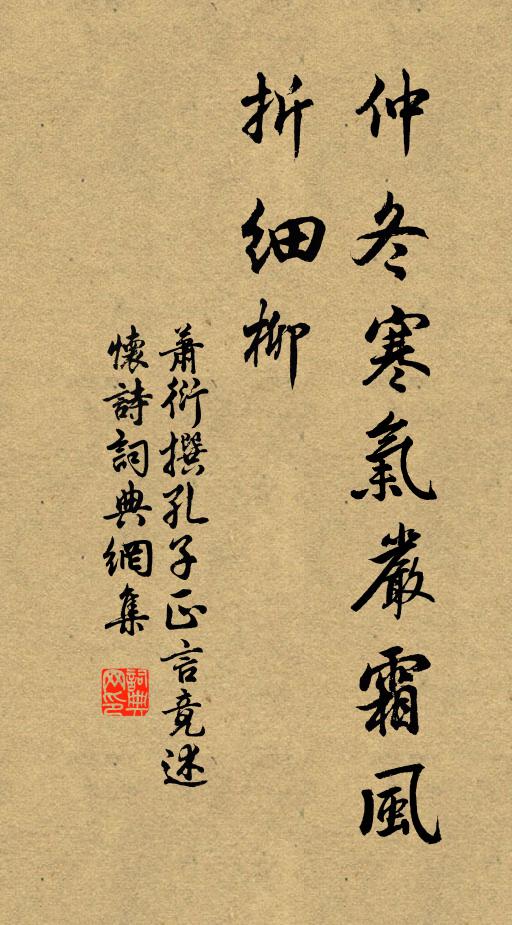 仲冬寒氣嚴霜風
折細柳
蕭衍撰孔子正言竟述
懷詩詞典網集
詞典
网印